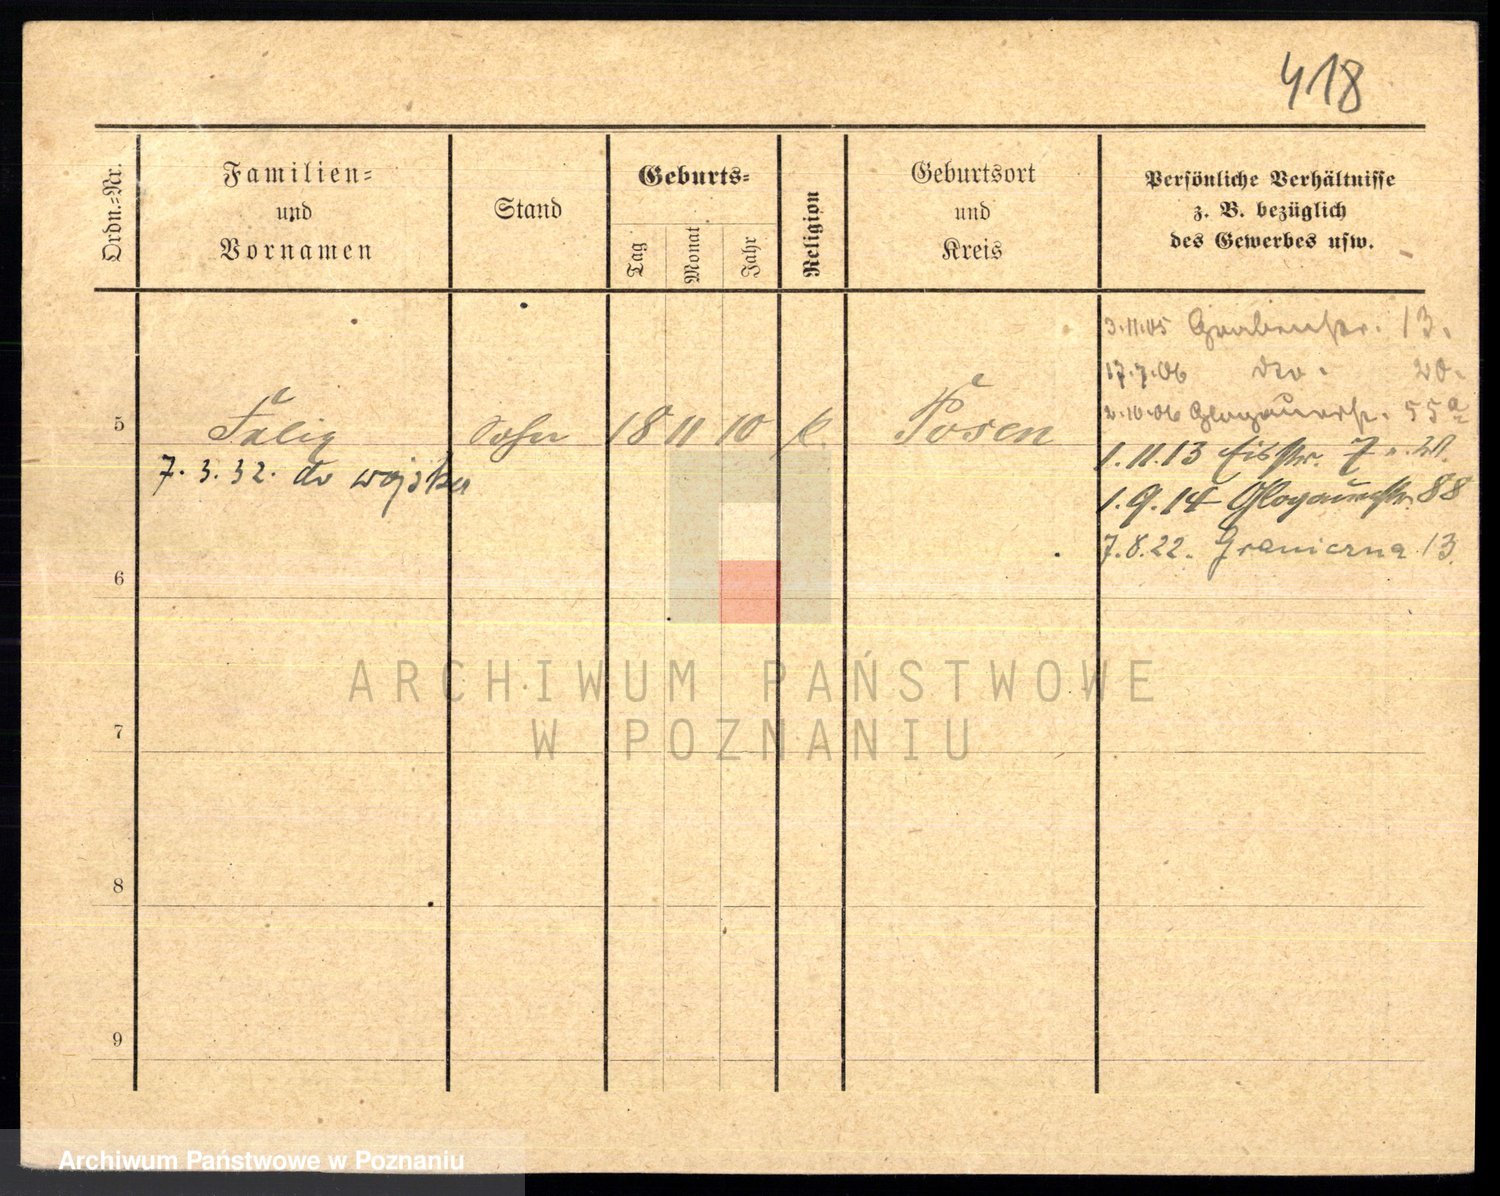 418
Ordn.-Nr.
Familien-
und
Vornamen
Stand
Geburts-
Tag
Monat
Jahr
Religion
Geburtsort
und
Kreis
Persönliche Verhältnisse
z. B. bezüglich
des Gewerbes usw.
3.11.05 Grabenstr. 13.
17.7.06 dto. 20.
2.10.06 Glogauerstr. 55a
5 Sohn 18 11 10 k. Posen
1.11.13 7
7.3.32. do wojska
1.9.14 Glogauerstr. 88
7.8.22. Graniczna 13.
6
ARCHIWUM PAŃSTWOWE
W POZNANIU
7
8
9
Archiwum Państwowe w Poznaniu